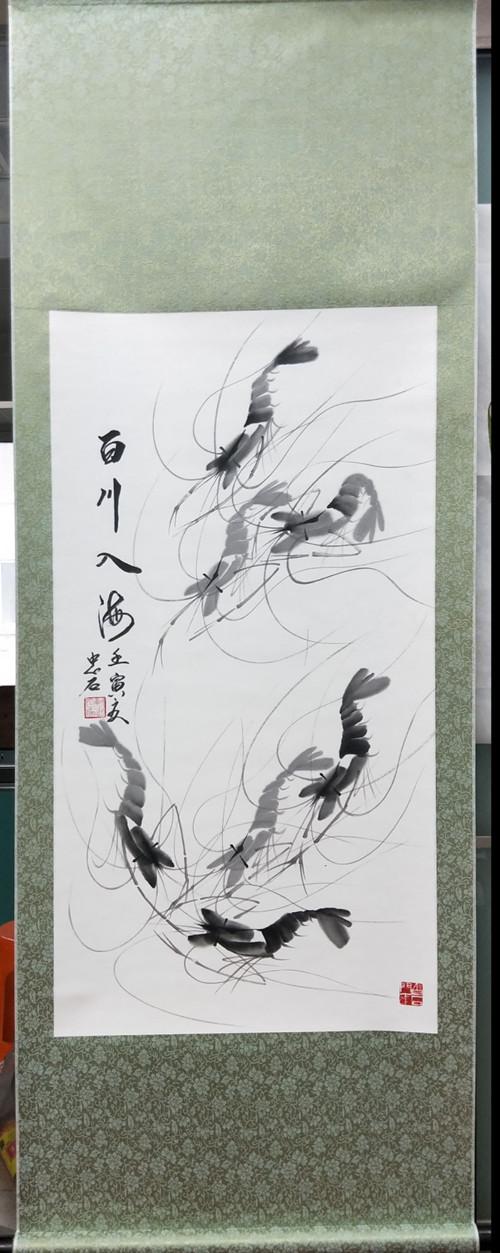 百川入海
壬寅夏
忠石